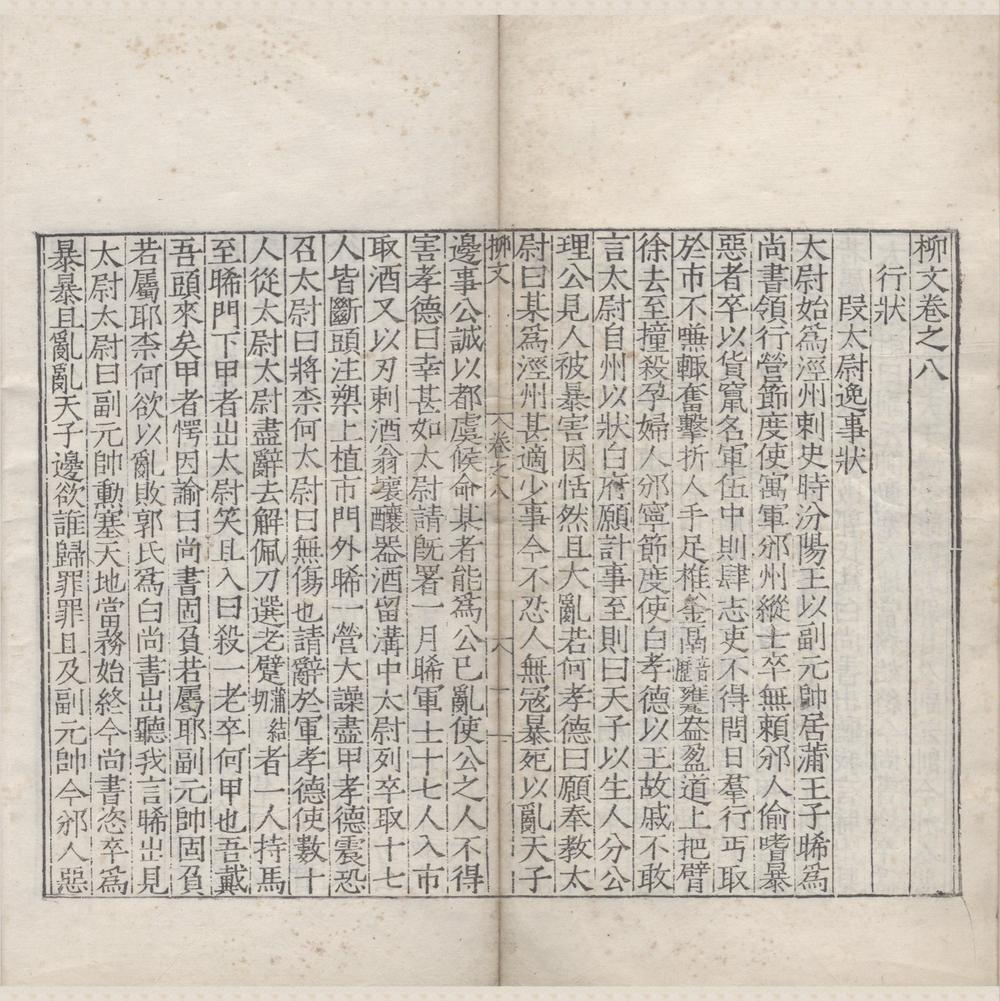 柳文卷之八
行狀
段太尉逸事狀
太尉始爲涇州刺史時汾陽王以副元帥居蒲王子晞爲
尚書領行營節度使寓軍邠州縱士卒無賴邠人偷嗜暴
惡者卒以貨竄名軍伍中則肆志吏不得問日羣行丐取
於市不嗛輒奮擊折人手足椎釜鬲音歷甕盎盈道上把臂
徐去至撞殺孕婦人邠寧節度使白孝德以王故戚不敢
言太尉自州以狀白府願計事至則曰天子以生人分公
理公見人被暴害因恬然且大亂若何孝德曰願奉教太
尉曰某爲涇州甚適少事今不忍人無寇暴死以亂天子
柳文 卷之八 八 十一
邊事公誠以都虞候命某者能爲公已亂使公之人不得
害孝德曰幸甚如太尉請旣署一月晞軍士十七人入市
取酒又以刃刺酒翁壞釀器酒留溝中太尉列卒取十七
人皆斷頭注槊上植市門外晞一營大譟盡甲孝德震恐
召太尉曰將柰何太尉曰無傷也請辭於軍孝德使數十
人從太尉太尉盡辭去解佩刀選老躄者一人持馬
至晞門下甲者出太尉笑且入曰殺一老卒何甲也吾戴
吾頭來矣甲者愕因諭曰尚書固負若屬耶副元帥固負
若屬耶柰何欲以亂敗郭氏爲白尚書出聽我言晞出見
太尉太尉曰副元帥勳塞天地當務始終今尚書恣卒爲
暴暴且亂亂天子邊欲誰歸罪罪且及副元帥今邠人惡